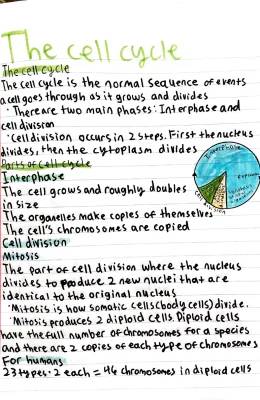 The cell cycle
The cell cycle
The cell cycle is the normal sequence of events
a cell goes through as it grows and divides
· There are two main phases: Interphase and
cell division
· Cell division occurs in 2 steps. First the nucleus
divides, then the cytoplasm divides
Parts of cell cycle
Interphase
The cell grows and roughly doubles
in size
The organelles make copies of themselves
The cell's chromosomes are copied
Cell division
Mitosis
The part of cell division where the nucleus
divides to produce 2 new nuclei that are
identical to the original nucleus
· Mitosis is how somatic cells (body cells) divide.
· Mitosis produces 2 diploid cells. Diploid cells
have the full number of chromosomes for a species
and there are 2 copies of each type of chromosomes
For humans
23 types · 2 each = 46 chromosomes in diploid cells
Interphase